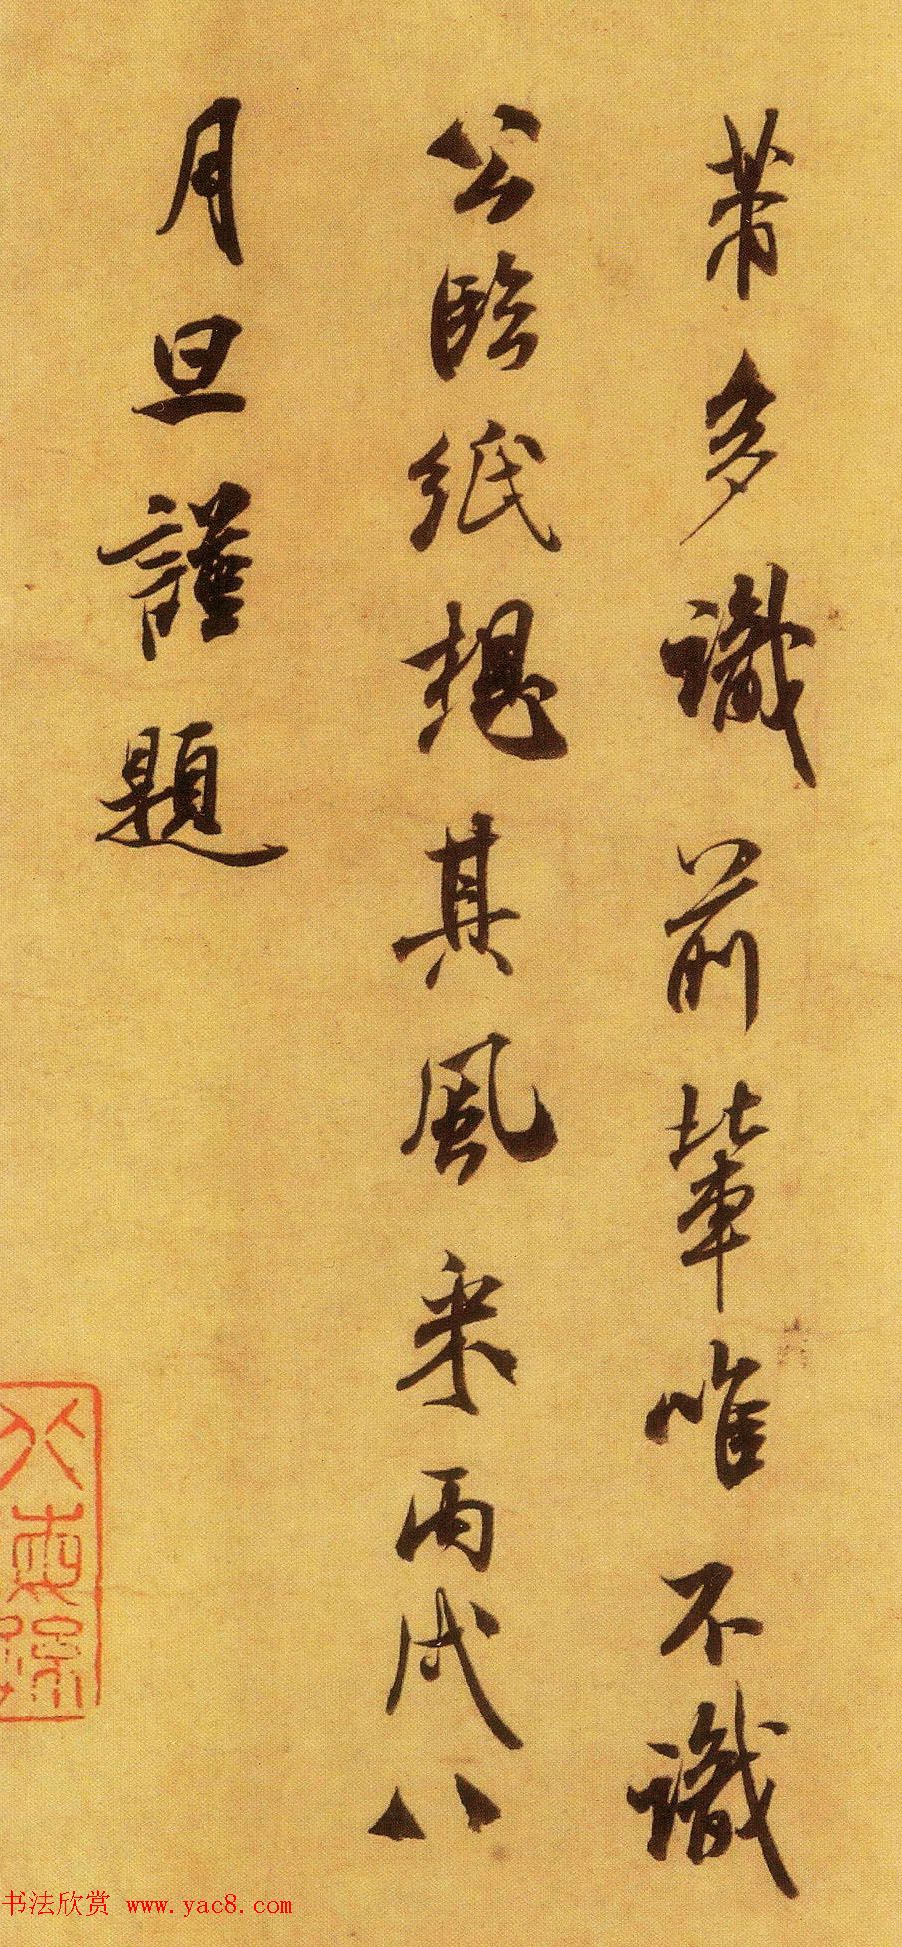 芾多識前輩唯不識
公臨紙想其風采丙戌八
月旦謹題
书法欣赏 www.yac8.com